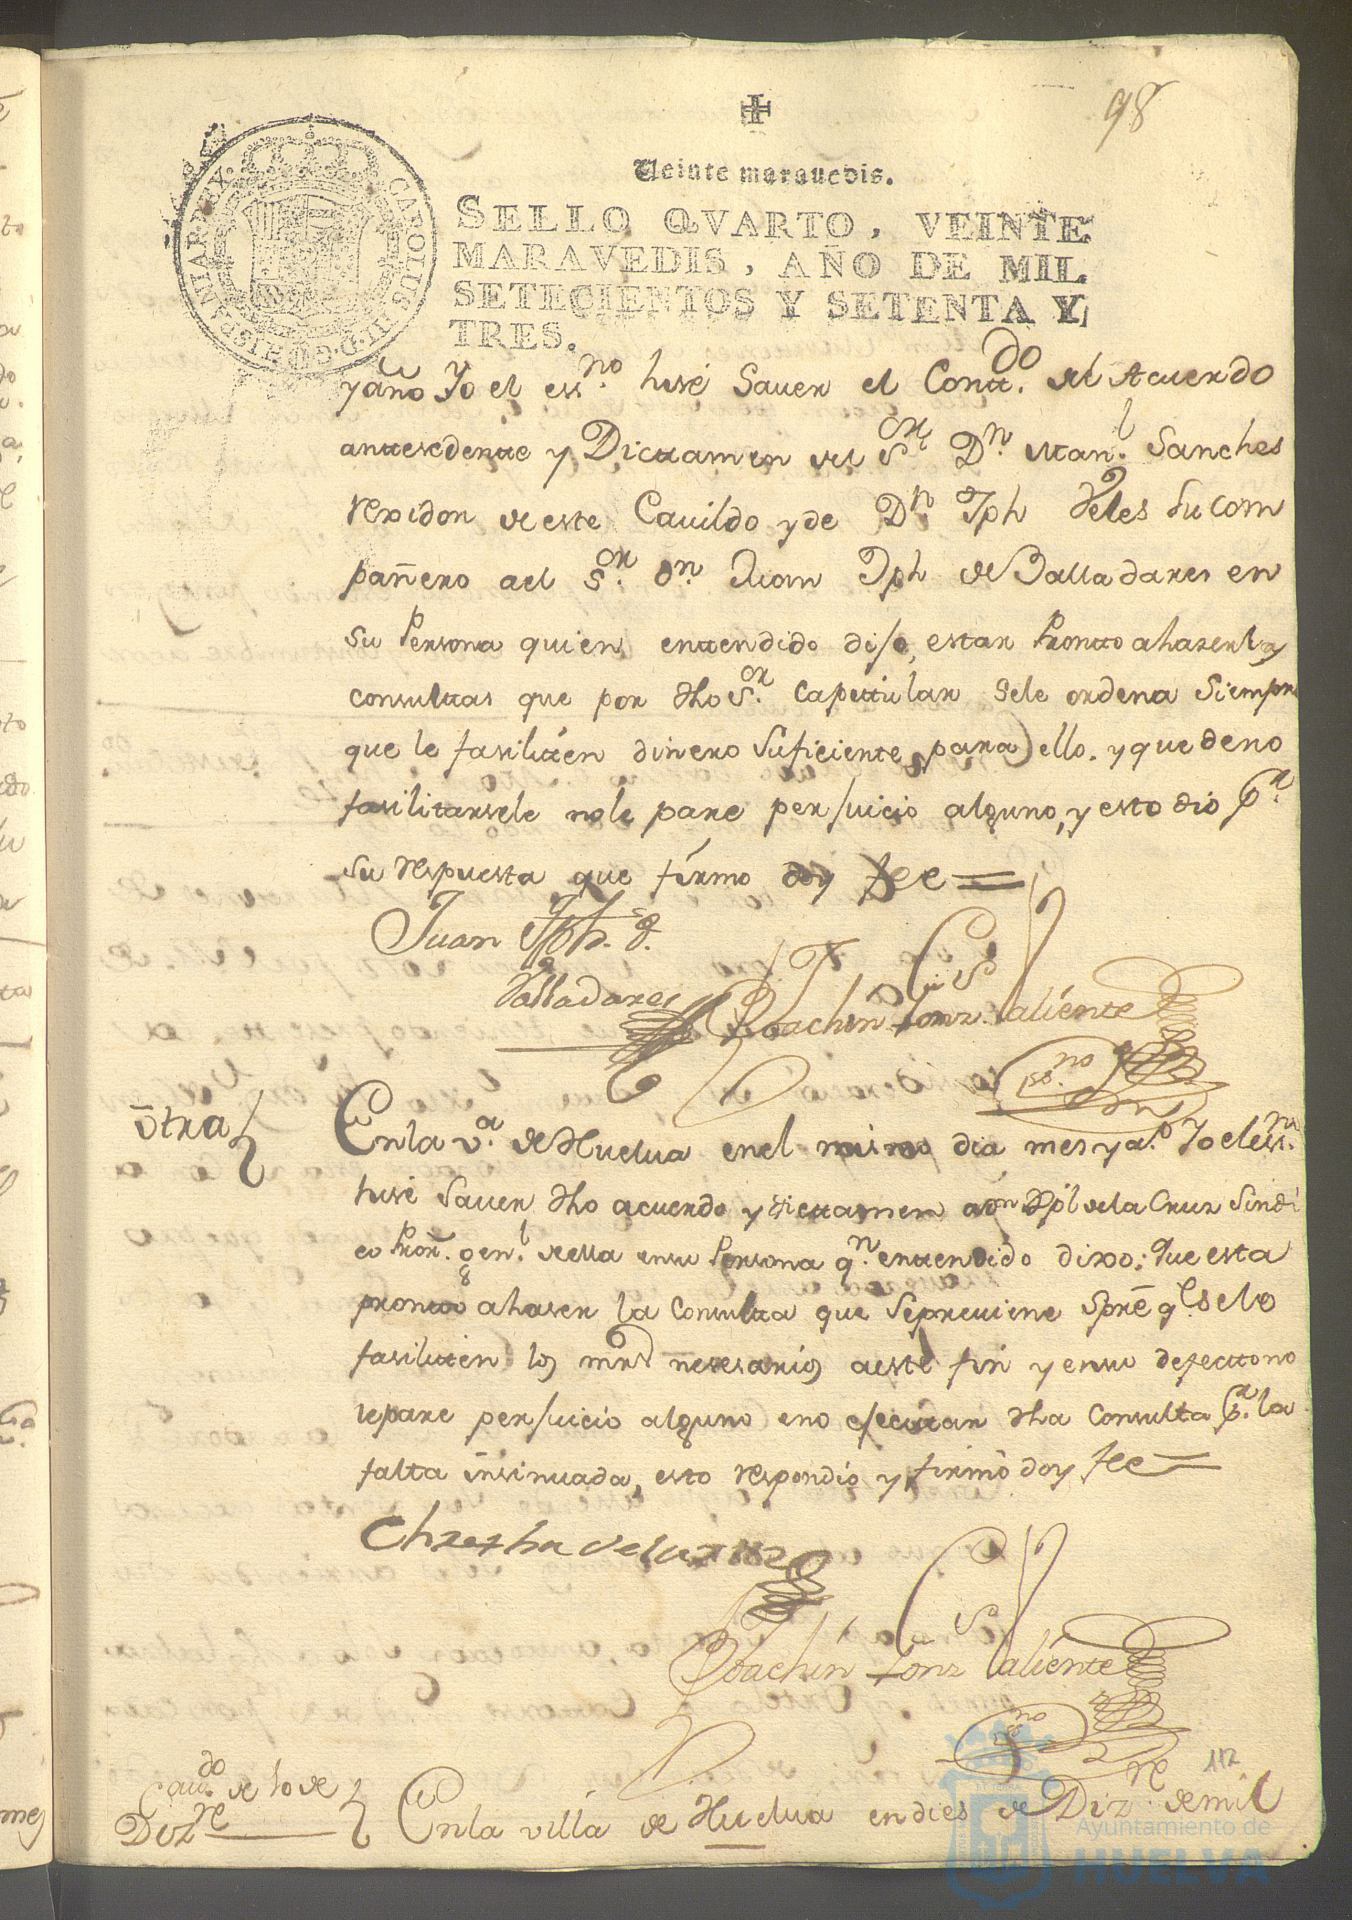 98
Veinte marauedis.
SELLO QVARTO, VEINTE
MARAVEDIS, AÑO DE MIL
SETECIENTOS Y SETENTA Y
TRES.
CAROLUS III D G HISPANIAR REX
y año Yo el esno hisé Saver el Contdo del Acuerdo
antesedente y Dictamen del Sor Dn Manl Sanches
rexidor de este Cavildo y de Dn Jph Veles su com
pañero ael Sor Dn Juan Jph de Balladares en
su Persona quien entendido dijo, estar Pronto a hazer las
consultas que por dho Sor Capitular sele ordena Siempre
que le fasiliten dinero suficiente para ello. y que deno
fasilitarsele nole pare perjuicio alguno, y esto dio pr
su respuesta que firmo doy fee
Juan Jph. d.
Valladares
Joachin Gonz Valiente
esno
otra
En la va de Huelva en el mismo dia mes y ao Yo el essno
hisé saver dho acuerdo y dictamen a dn Xpl de la Cruz Sindi
co Pror. genl de ella en su Persona qn entendido dixo; que esta
pronto a haser la Consulta que se previene spre q se lo
fasiliten los mrs nesesarios a este fin y en su defecto no
le pare perjuicio alguno en o ejecutar dha Consulta pr la
falta insinuada, esto respondio y firmó doy fee
Joachin Gonz Valiente
esno
112
Cavdo de 10 de
Dizre
En la villa de Huelva en dies de Dizre de mil
Ayuntamiento de
HUELVA